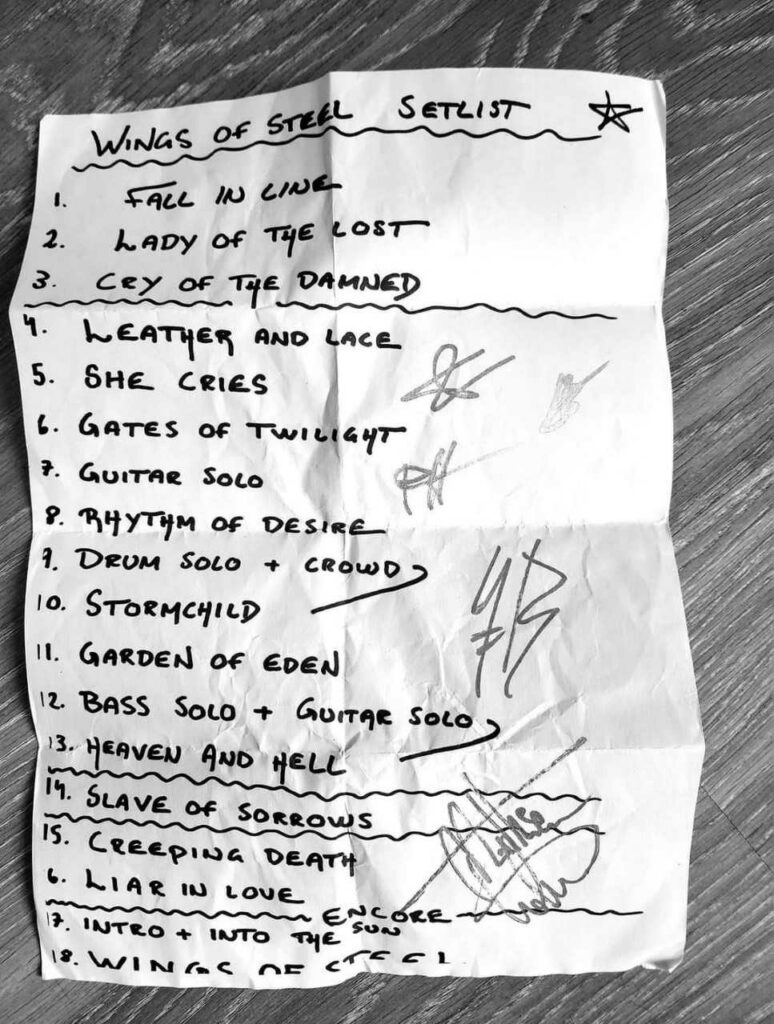 WINGS OF STEEL SETLIST
1. FALL IN LINE
2. LADY OF THE LOST
3. CRY OF THE DAMNED
4. LEATHER AND LACE
5. SHE CRIES
6. GATES OF TWILIGHT
7. GUITAR SOLO
8. RHYTHM OF DESIRE
9. DRUM SOLO + CROWD
10. STORMCHILD
11. GARDEN OF EDEN
12. BASS SOLO + GUITAR SOLO
13. HEAVEN AND HELL
14. SLAVE OF SORROWS
15. CREEPING DEATH
6. LIAR IN LOVE
ENCORE
17. INTRO + INTO THE SUN
18. WINGS OF STEEL